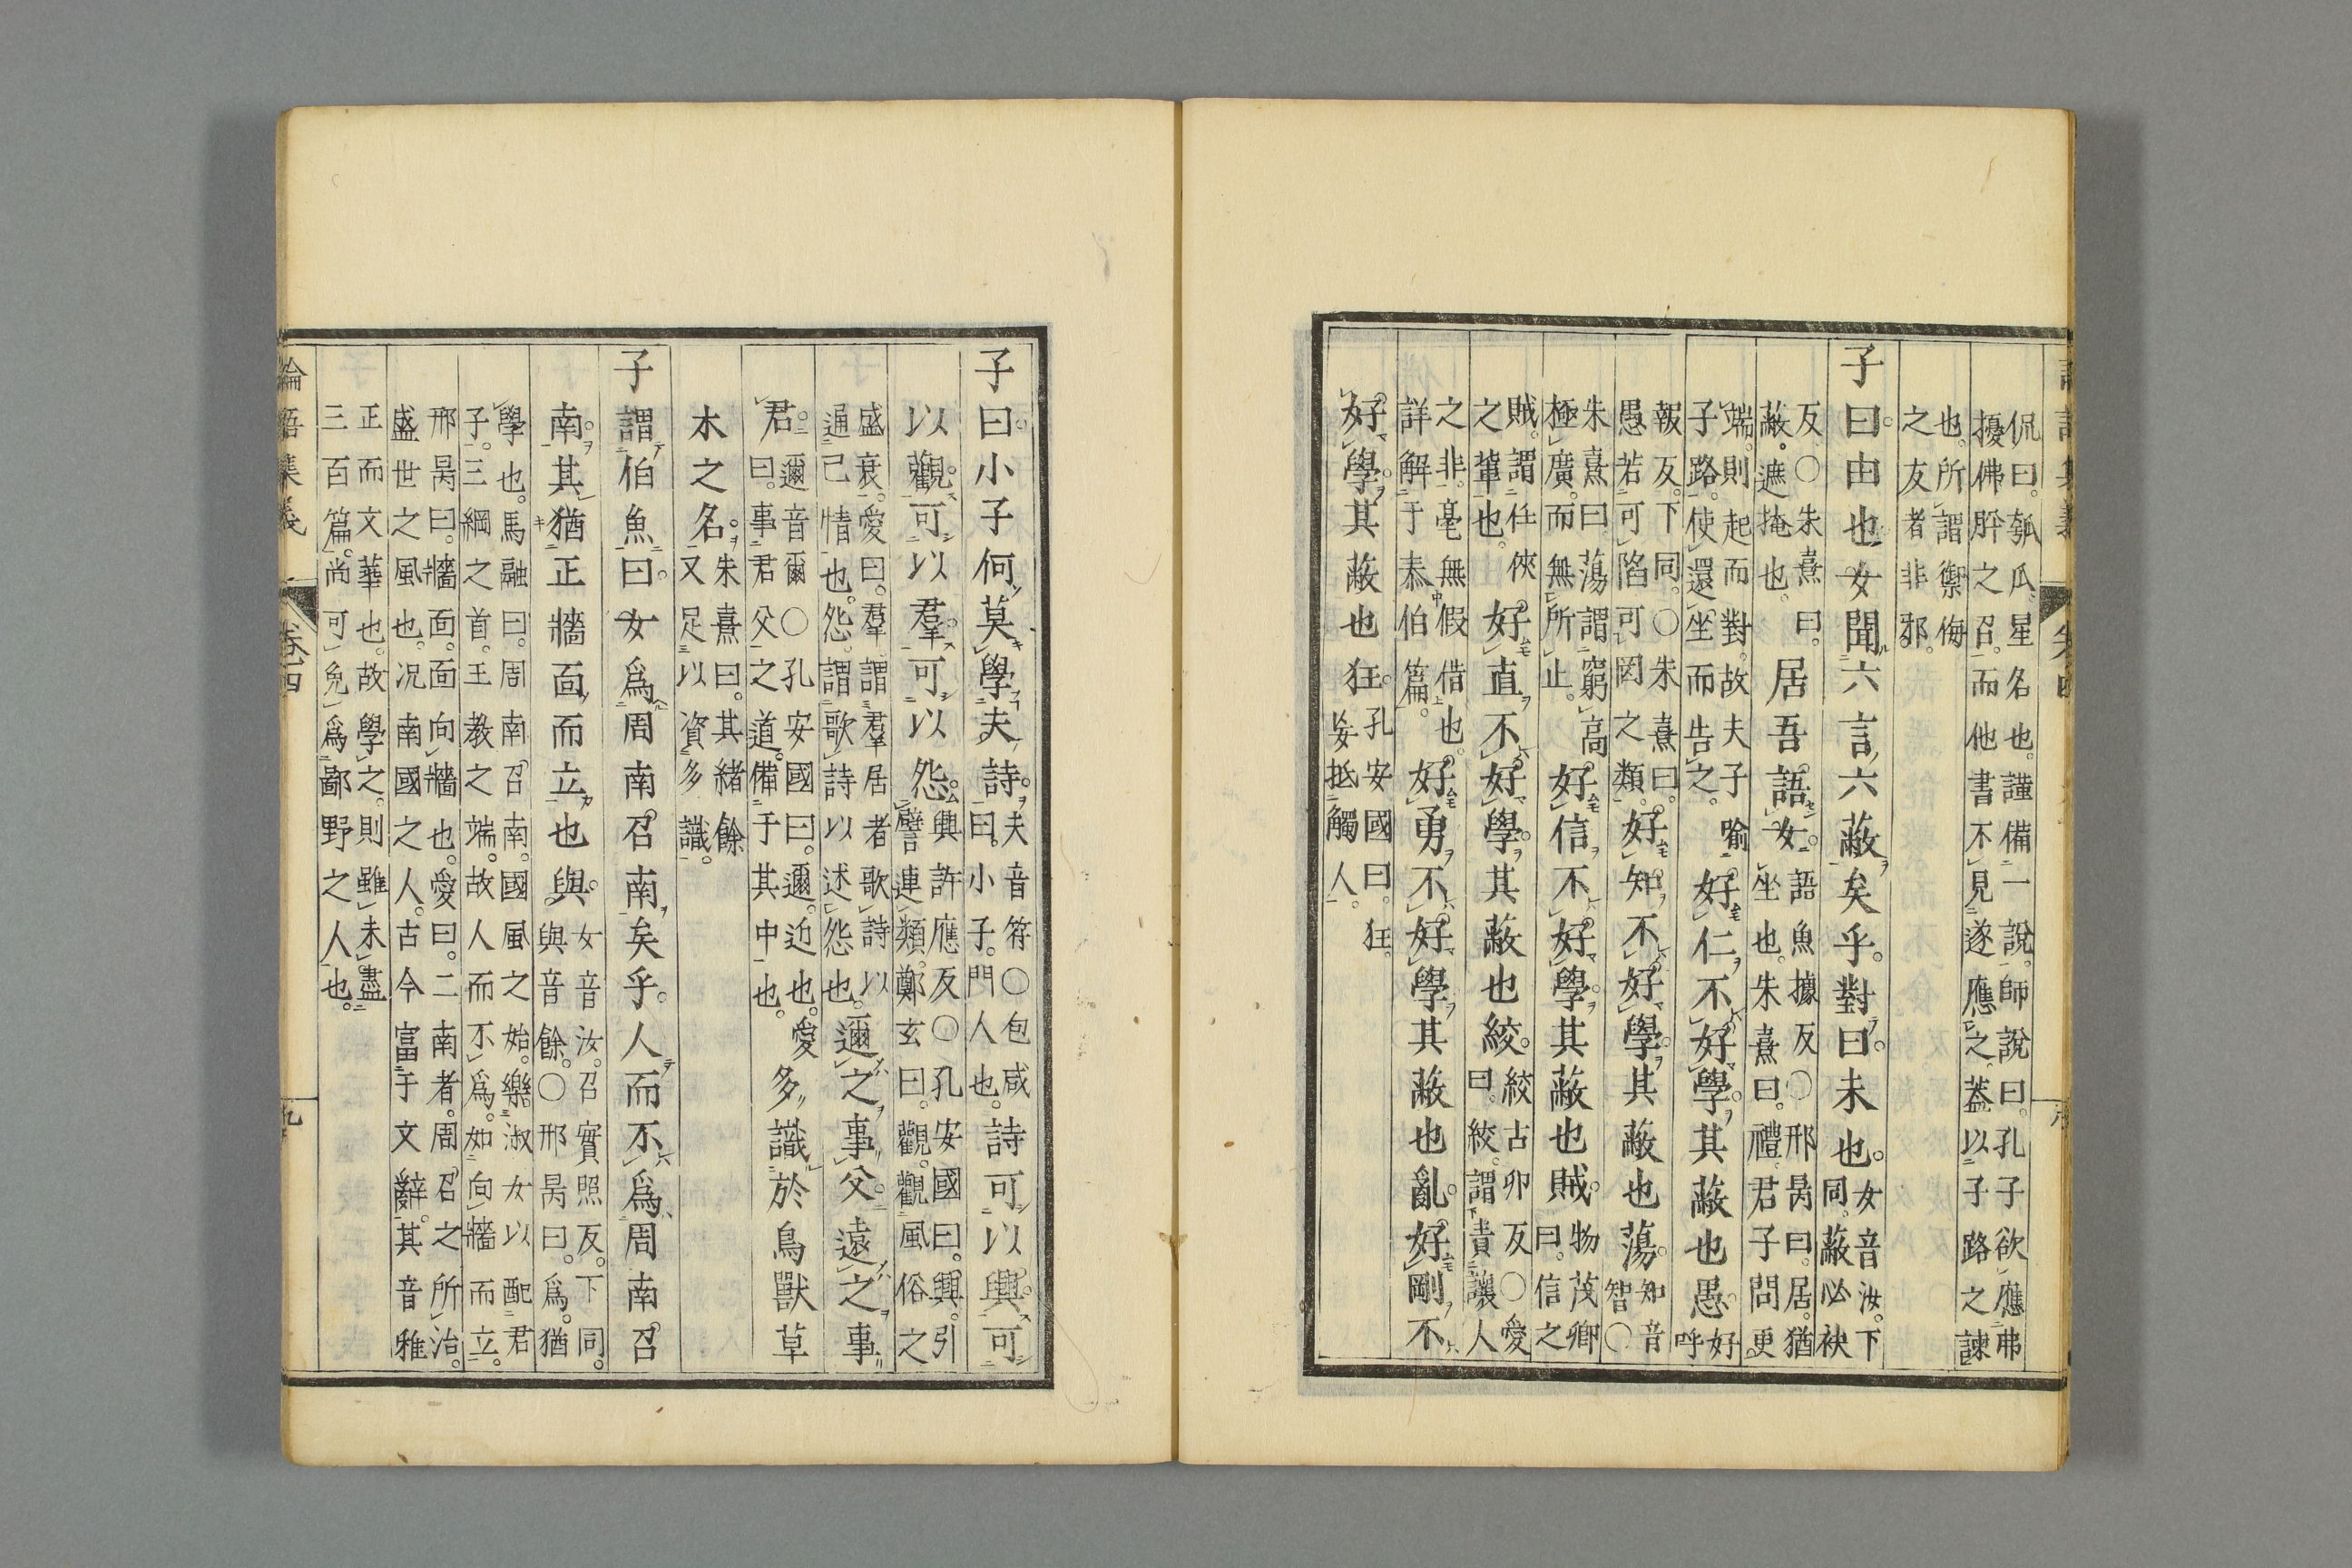 侃曰。瓠瓜。星名也。謹備一說。師說曰。孔子欲應弗擾佛肸之召。而他書不見遂應之。蓋以子路之諫
也。所謂禦侮之友者非邪。
子曰。由也女聞六言六蔽矣乎。對曰。未也。女音汝。下同。蔽必袂
反〇朱熹曰。蔽。遮掩也。居吾語女。語魚據反〇邢昺曰。居。猶坐也。朱熹曰。禮。君子問更
端。則起而對。故夫子喻子路。使還坐而告之。好仁不好學。其蔽也愚。好呼
報反。下同。〇朱熹曰。愚若可陷可罔之類。好知不好學。其蔽也蕩。知音智〇
朱熹曰。蕩謂窮高極廣。而無所止。好信不好學。其蔽也賊。物茂卿曰。信之
賊。謂任俠之輩也。好直不好學。其蔽也絞。絞古卯反〇愛曰。絞。謂責讓人
之非。毫無假借也。詳解于泰伯篇。好勇不好學。其蔽也亂。好剛不
好學。其蔽也狂。孔安國曰。狂。妄抵觸人。
子曰。小子何莫學夫詩。夫音符〇包咸曰。小子。門人也。詩可以興。可
以觀。可以羣。可以怨。興許應反〇孔安國曰。興。引譬連類。鄭玄曰。觀。觀風俗之
盛衰。愛曰。羣謂羣居者歌詩以通己情也。怨。謂歌詩以述怨也。邇之事父。遠之事
君。邇音爾〇孔安國曰。邇。近也。愛曰。事君父之道。備于其中也。多識於鳥獸草
木之名。朱熹曰。其緒餘又足以資多識。
子謂伯魚曰。女爲周南召南矣乎。人而不爲周南召
南。其猶正牆面而立也與。女音汝。召實照反。下同。與音餘。〇邢昺曰。爲。猶
學也。馬融曰。周南召南。國風之始。樂淑女以配君子。三綱之首。王教之端。故人而不爲。如向牆而立。
邢昺曰。牆面。面向牆也。愛曰。二南者。周召之所治。盛世之風也。況南國之人。古今富于文辭。其音雅
正而文華也。故學之。則雖未盡三百篇。尚可免爲鄙野之人也。
論語集義
卷四
九